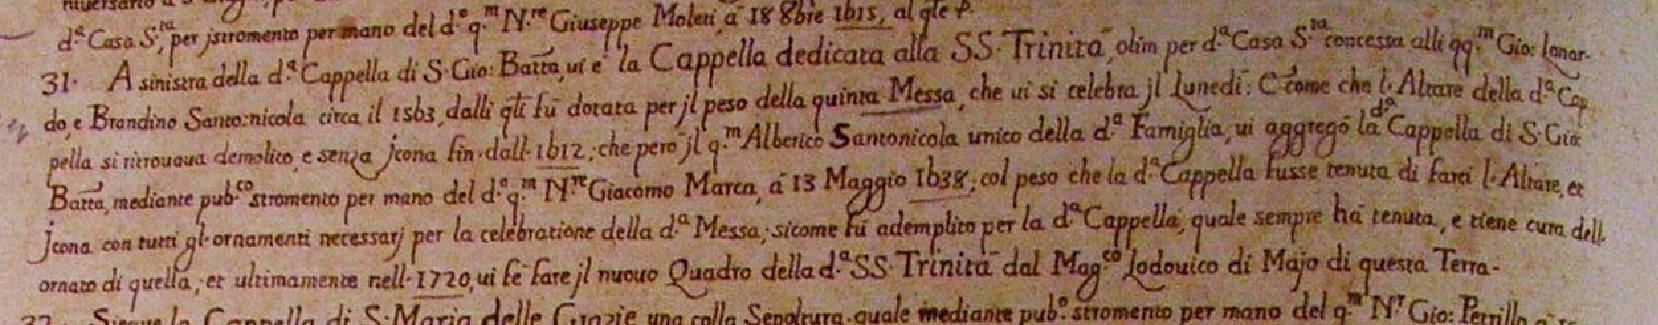 d.ª Casa S.ta, per jstromento per mano del d.º q.m N.re Giuseppe Moleti, à 18 8bre 1615, al qle P.
31. A sinistra della d.ª Cappella di S. Gio: Batta, vi è la Cappella dedicata alla SS. Trinità, olim per d.ª Casa S.ta concessa alli qq.m Gio: Lonar-
do, e Brandino Santo:nicola circa il 1563, dalli qli fù dotata per jl peso della quinta Messa, che vi si celebra jl Lunedì: E come che l'Altare della d.ª Cap
pella si ritrovava demolito, e senza jcona fin dall'1612; che però jl q.m Alberico Santonicola unico della d.ª Famiglia, vi aggregò la d.ª Cappella di S. Gio:
Batta, mediante pub.co stromento per mano del d.º q.m N.re Giacomo Marca, à 13 Maggio 1638; col peso che la d.ª Cappella fusse tenuta di farci l'Altare, et
Jcona con tutti gl'ornamenti necessarj per la celebratione della d.ª Messa; sicome fù adempiito per la d.ª Cappella, quale sempre hà tenuta, e tiene cura dell'
ornato di quella; et ultimamente nell'1720, vi fè fare jl nuovo Quadro della d.ª SS. Trinità dal Mag.co Lodovico di Majo di questa Terra-
Siegue la Cappella di S. Maria delle Grazie una colla Sepoltura quale mediante pub.º stromento per mano del q.m N.r Gio: Petrillo